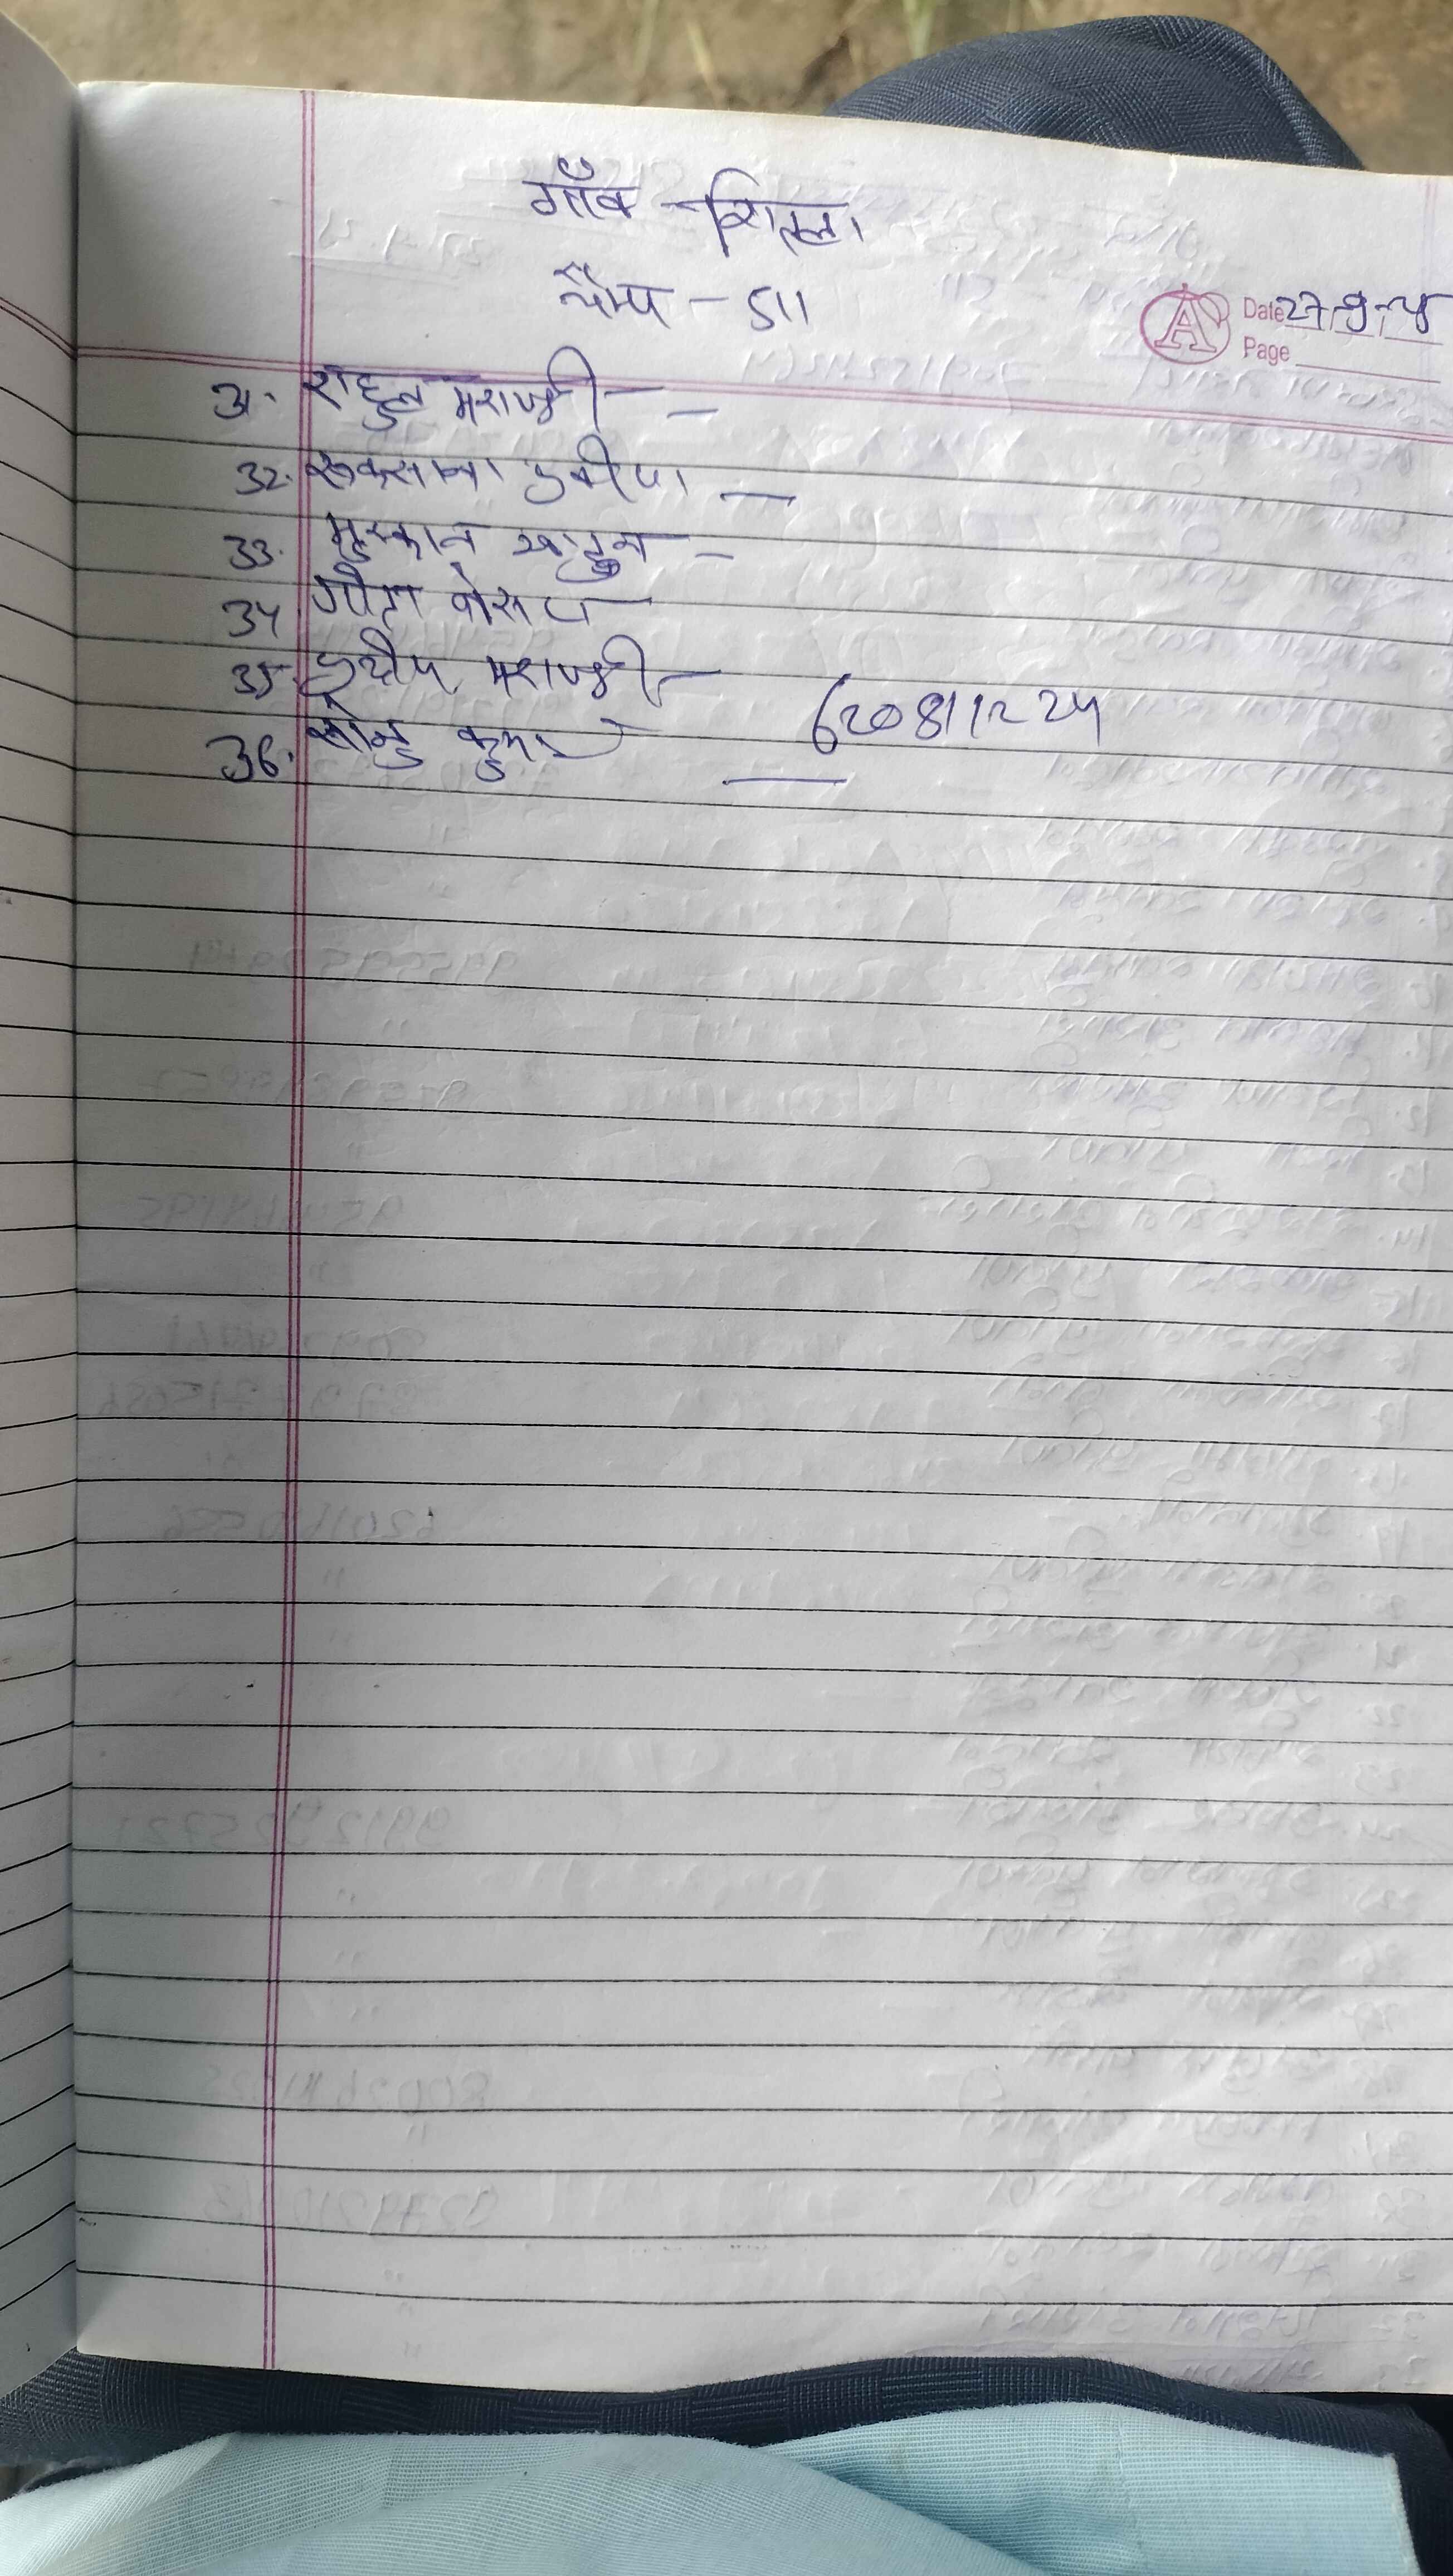 गाँव - शितला
कैम्प - 511
Date 27-9-25
Page
31. राहुल मराण्डी -
32. रुकसाना प्रवीण -
33. मुस्कान खातुन -
34. गीता
35. प्रदीप मराण्डी -
36. सोनु कुमार
620811224